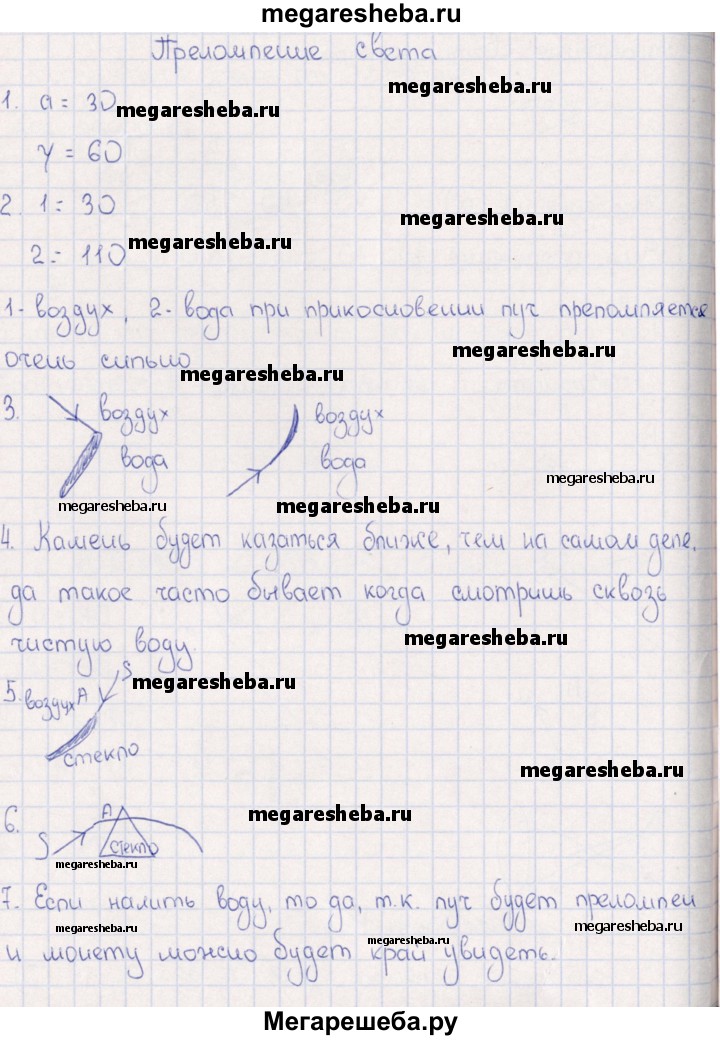 megaresheba.ru
Преломление света
1. α = 30 megaresheba.ru
megaresheba.ru
γ = 60
2. 1 = 30
megaresheba.ru
2 = 110 megaresheba.ru
1 - воздух, 2 - вода при прикосновении луч преломляется
очень сильно megaresheba.ru
megaresheba.ru
3. воздух воздух
вода вода
megaresheba.ru megaresheba.ru megaresheba.ru
4. Камень будет казаться ближе, чем на самом деле.
да такое часто бывает когда смотришь сквозь
чистую воду. megaresheba.ru
S megaresheba.ru
5. воздух A
стекло
megaresheba.ru
6. A megaresheba.ru
S стекло
megaresheba.ru
7. Если налить воду, то да, т.к. луч будет преломлен
megaresheba.ru megaresheba.ru megaresheba.ru
и монету можно будет край увидеть.
Мегарешеба.ру